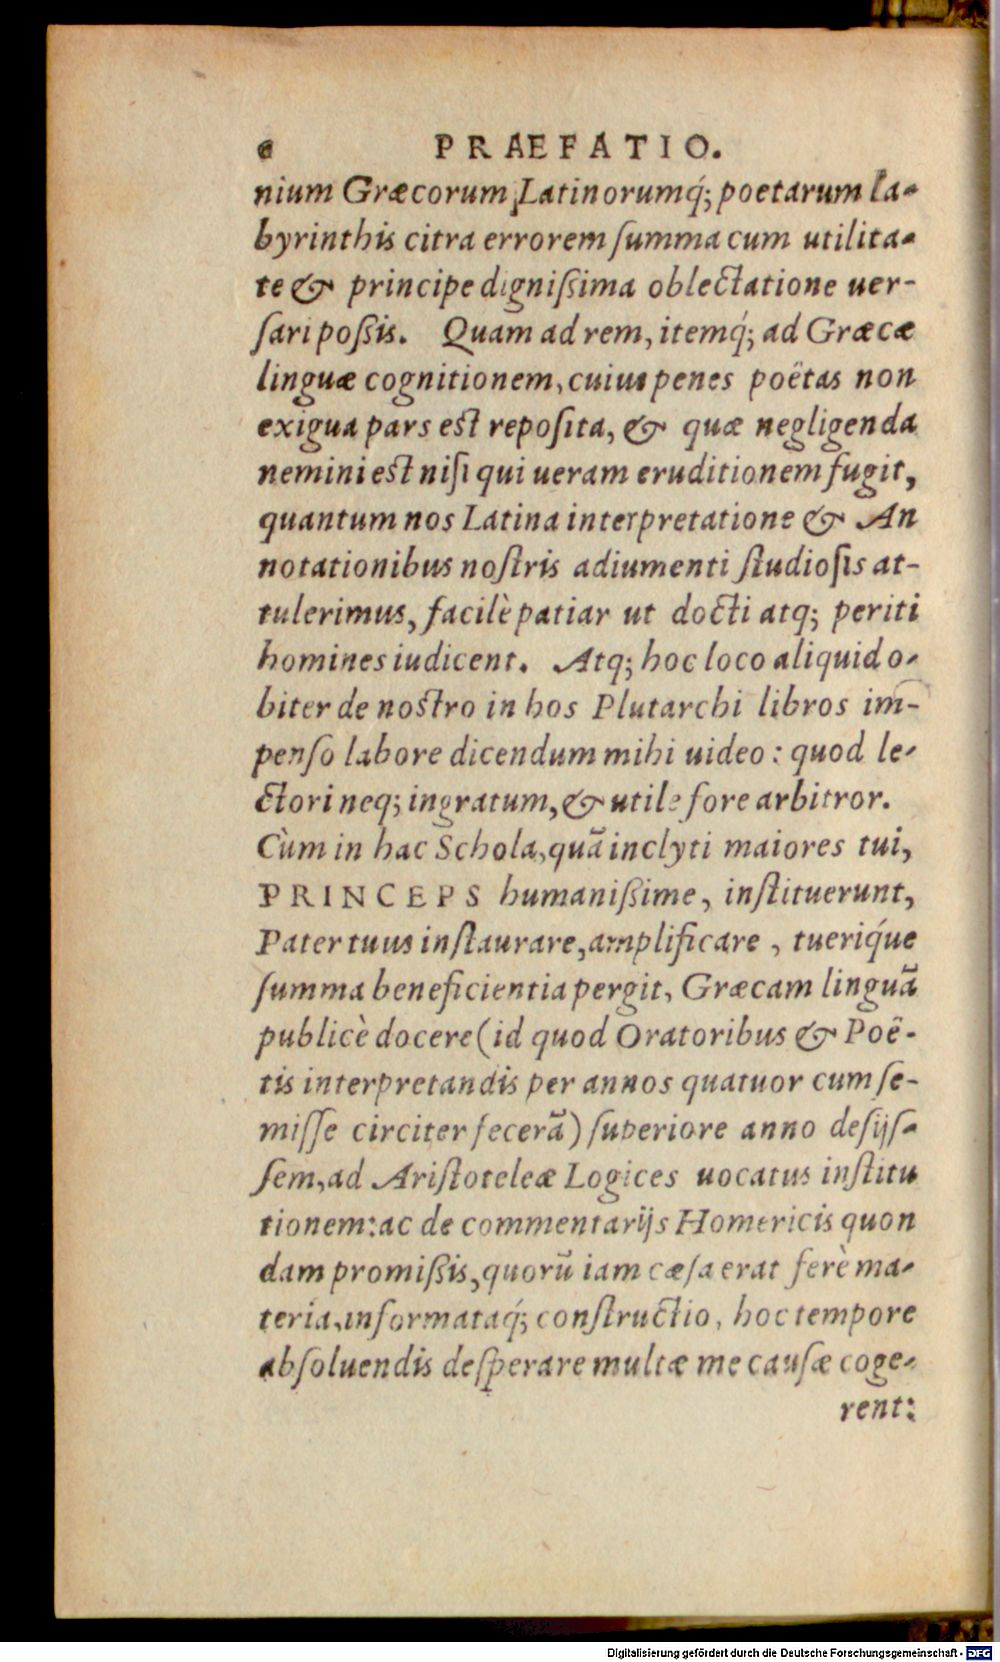 PRAEFATIO.
nium Græcorum Latinorumq́; poetarum la-
byrinthis citra errorem ſumma cum utilita-
te & principe digniſsima oblectatione uer-
ſari poſsis. Quam ad rem, itemq́; ad Græcæ
linguæ cognitionem, cuius penes poëtas non
exigua pars est reposita, & quæ negligenda
nemini est niſi qui ueram eruditionem fugit,
quantum nos Latina interpretatione & An
notationibus noſtris adiumenti ſtudioſis at-
tulerimus, facilè patiar ut docti atq; periti
homines iudicent. Atq; hoc loco aliquid o-
biter de nostro in hos Plutarchi libros im-
penſo labore dicendum mihi uideo: quod le-
ctori neq; ingratum, & utile fore arbitror.
Cùm in hac Schola, quã inclyti maiores tui,
PRINCEPS humaniſsime, inſtituerunt,
Pater tuus inſtaurare, amplificare, tueriq́ue
ſumma beneficientia pergit, Græcam linguã
publicè docere (id quod Oratoribus & Poë-
tis interpretandis per annos quatuor cum ſe-
miſſe circiter fecerã) ſuperiore anno deſijſ-
ſem, ad Ariſtoteleæ Logices uocatus inſtitu
tionem: ac de commentarijs Homericis quon
dam promiſsis, quorũ iam cæſa erat ferè ma-
teria, informataq́; conſtructio, hoc tempore
abſoluendis deſperare multæ me cauſæ coge-
rent:
Digitalisierung gefördert durch die Deutsche Forschungsgemeinschaft - DFG